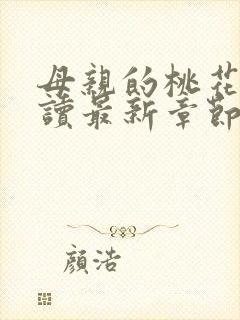 母親的桃花
讀最新章節
顏浩